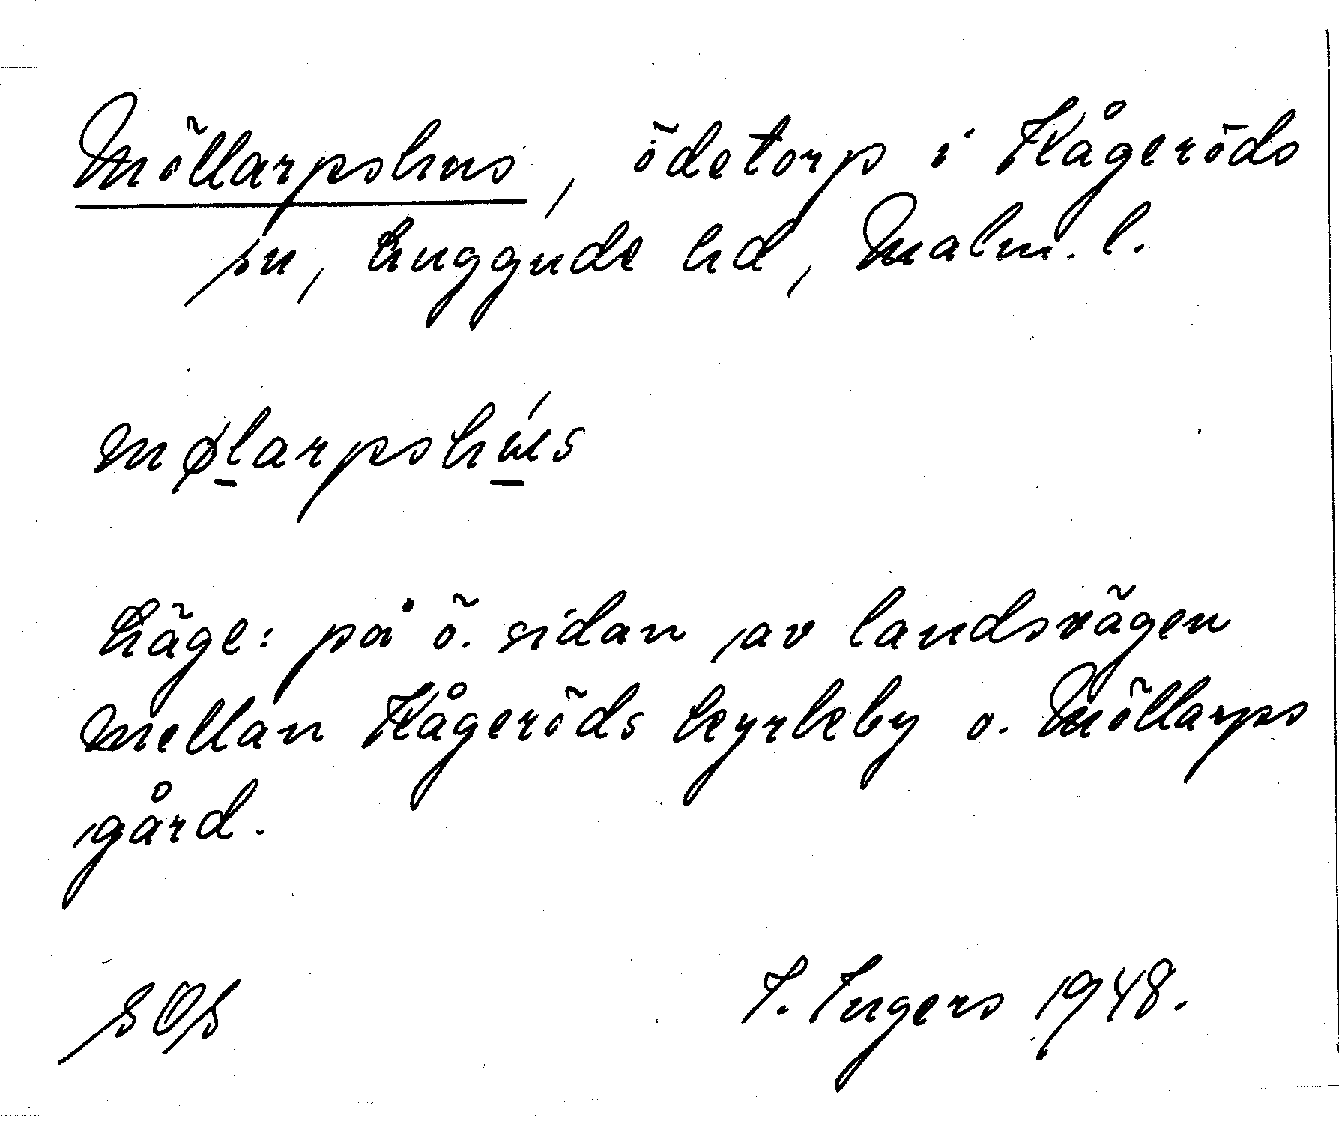 Möllarpshus, ödetorp i Kågeröds
sn, Luggude hd, Malm. l.
mølarpshús
Läge: på ö. sidan av landsvägen
mellan Kågeröds kyrkby o. Möllarps
gård.
SOS
I. Ingers 1948.